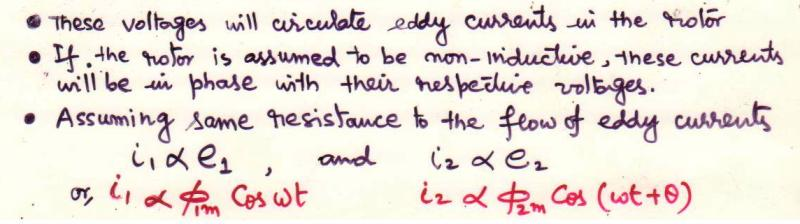 • These voltages will circulate eddy currents in the rotor
• If the rotor is assumed to be non-inductive, these currents
will be in phase with their respective voltages.
• Assuming same resistance to the flow of eddy currents
i₁ ∝ e₁ , and i₂ ∝ e₂
or, i₁ ∝ ϕ₁ₘ Cos ωt i₂ ∝ ϕ₂ₘ Cos (ωt + θ)